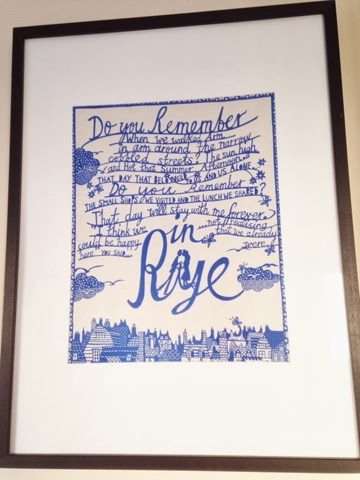 Do you Remember
When we walked Arm
in arm around the narrow
cobbled streets? The sun high
and hot that Summer Afternoon
THAT DAY THAT BELONGED TO US AND US ALONE
Do you Remember
THE SMALL SHOPS WE VISITED AND THE LUNCH WE SHARED?
That day will stay with me forever
I think we not realising
could be happy that we already
here YOU SAID were
in
Rye